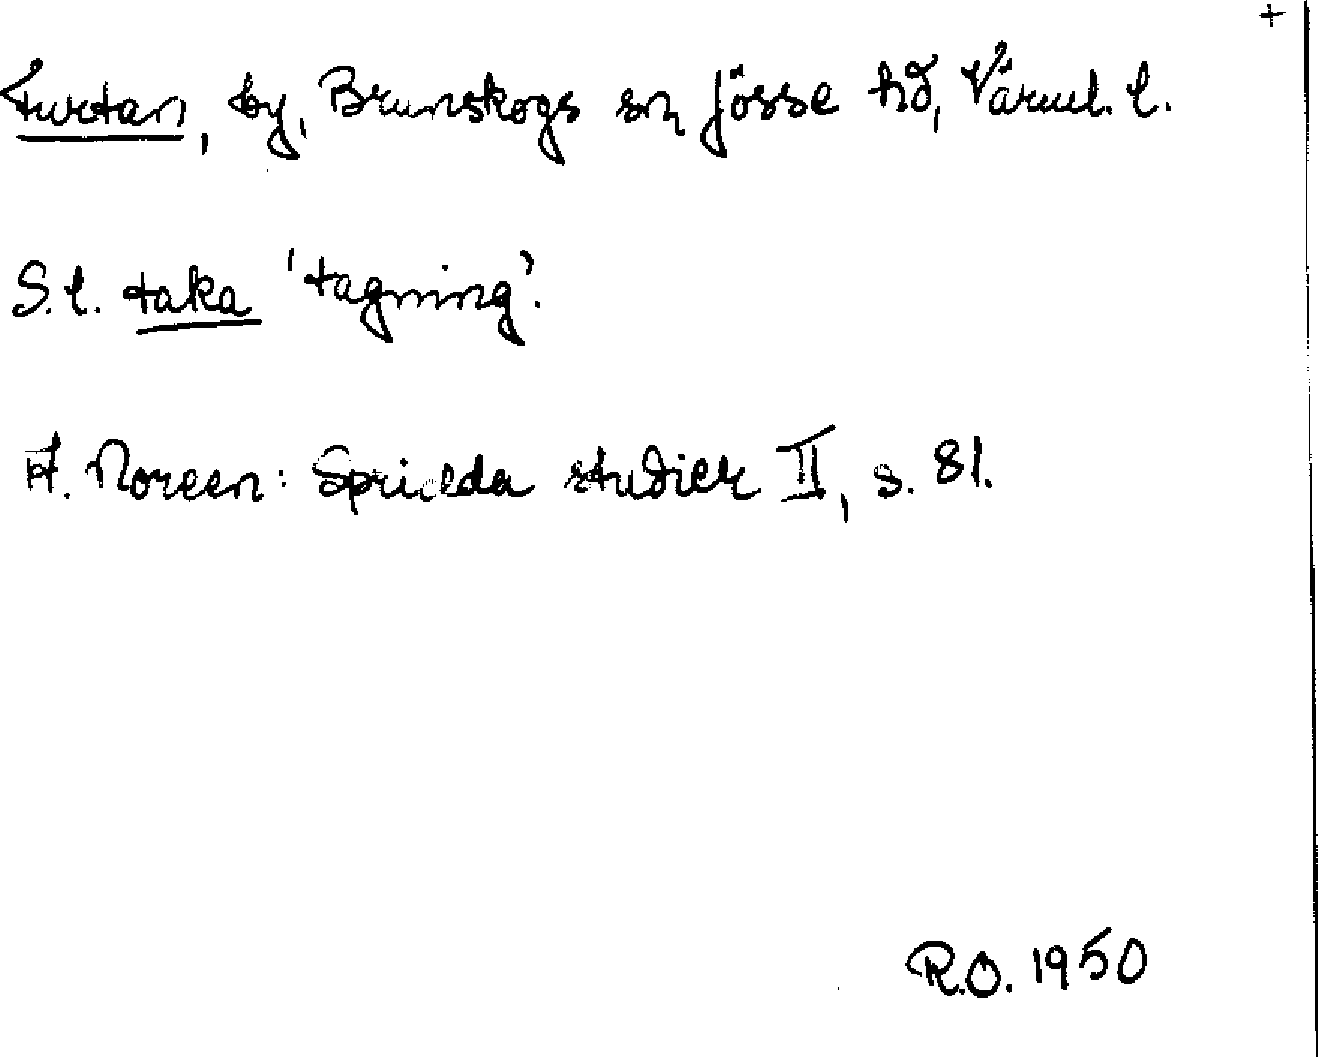 +
Furtan, by, Brunskogs sn Jösse hd, Värml. l.
S.l. taka 'tagning'.
A. Noreen: Spridda studier II, s. 81.
R.O. 1950